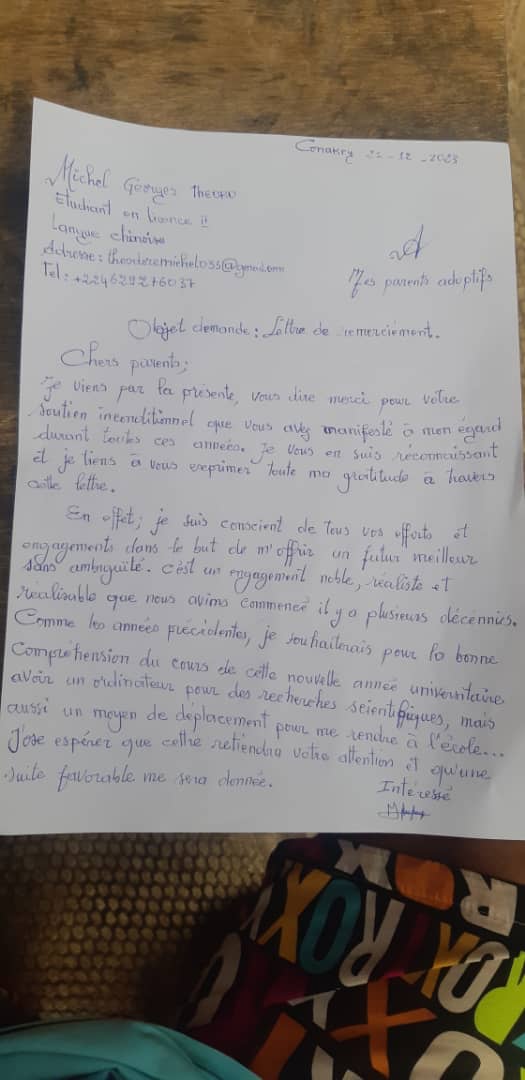 Conakry 22-12-2023
Michel Georges THEORO
Etudiant en licence II
Langue chinoise
Adresse : theodoremichel035@gmail.com
Tel : +224629276037
A
Mes parents adoptifs
Objet demande : Lettre de remerciement.
Chers parents ;
Je viens par la présente, vous dire merci pour votre
soutien inconditionnel que vous avez manifesté à mon égard
durant toutes ces années. Je vous en suis reconnaissant
et je tiens à vous exprimer toute ma gratitude à travers
cette lettre.
En effet ; je suis conscient de tous vos efforts et
engagements dans le but de m'offrir un futur meilleur
sans ambiguité. c'est un engagement noble, réaliste et
réalisable que nous avions commencé il y a plusieurs décennies.
Comme les années précédentes, je souhaiterais pour la bonne
Compréhension du cours de cette nouvelle année universitaire
avoir un ordinateur pour des recherches scientifiques, mais
aussi un moyen de déplacement pour me rendre à l'école...
J'ose espérer que cette retiendra votre attention et qu'une
suite favorable me sera donnée.
Intéressé
ROX